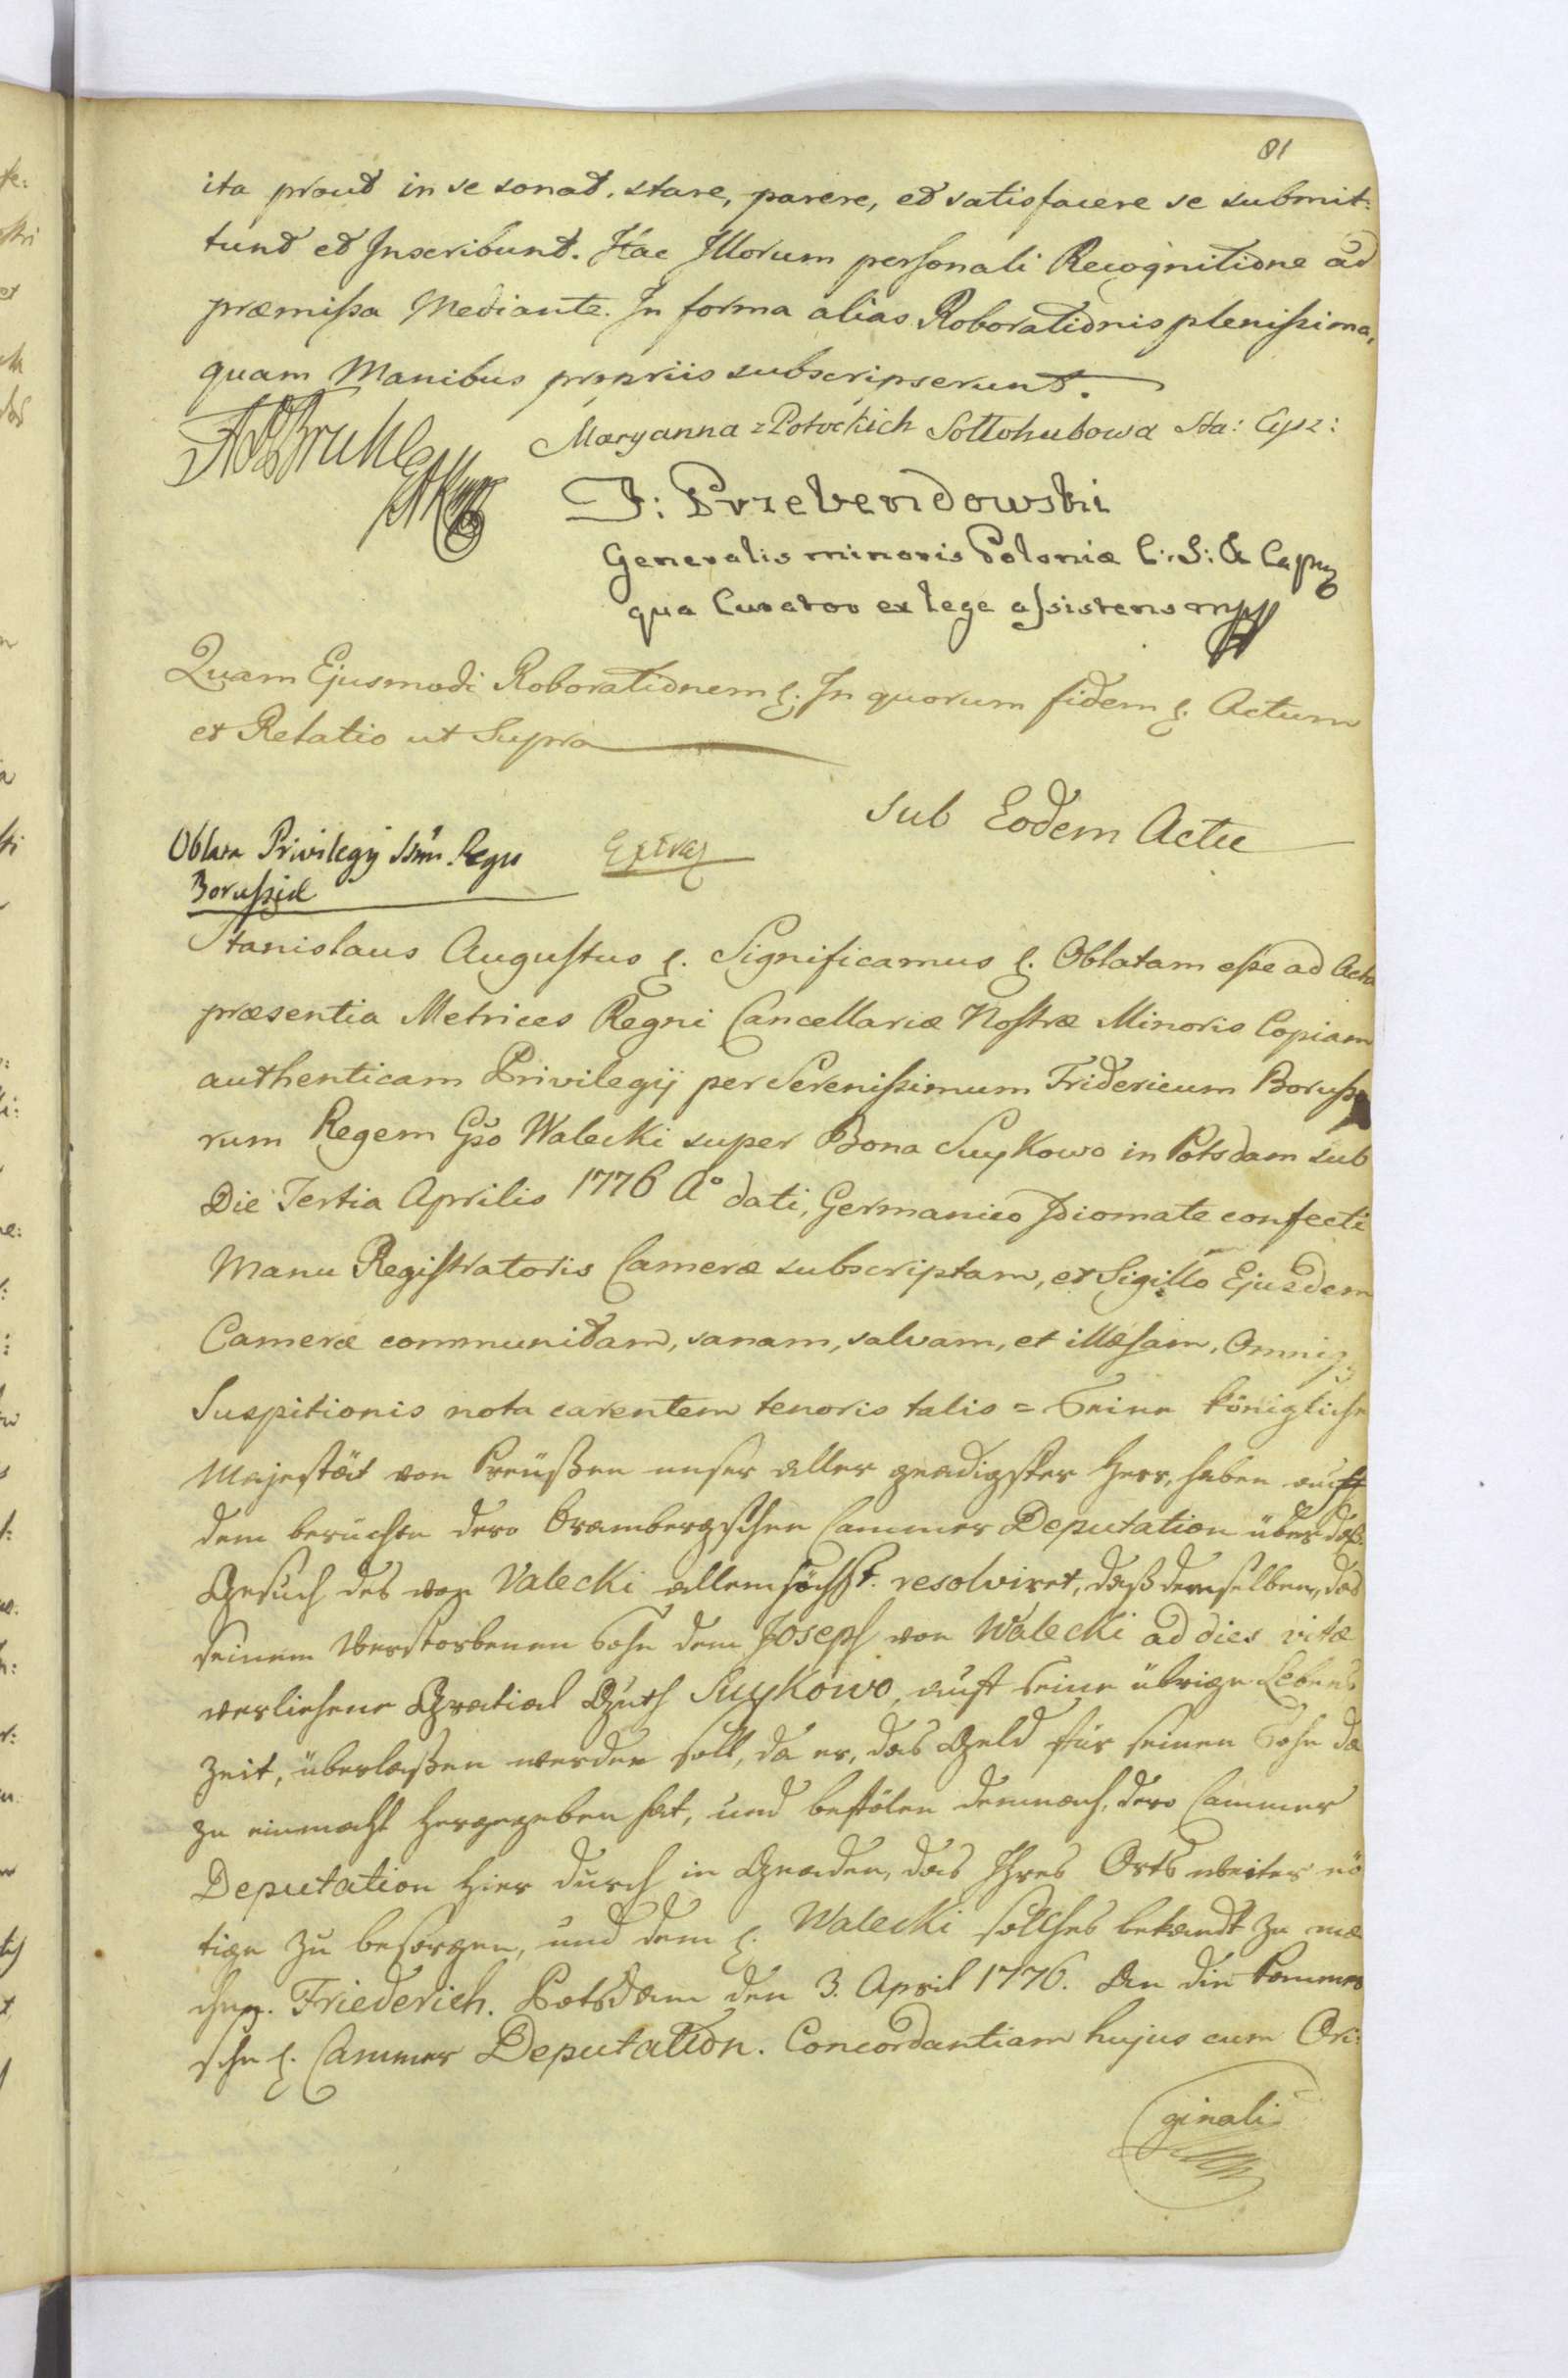 81
ita prout in se sonat, stare, parere, et satisfacere se submit:
tunt et Inscribunt. Hac Illorum personali Recognitione ad
præmissa Mediante. In forma alias Roborationis plenissima,
quam Manibus propriis subscripserunt.
Maryanna z Potockich Sołłohubowa Sta: Eysz:
A Bruhl
J: Przebendowski
Generalis minoris Poloniæ C: S: &
qua Curator ex lege assistens mpp
Quam Ejusmodi Roborationem &. In quorum fidem &. Actum
et Relatio ut Supra
Sub Eodem Actu
Oblata Privilegij Ssmi Regis
Borussiæ
Extrad
Stanislaus Augustus &. Significamus &. Oblatam esse ad Acta
præsentia Metrices Regni Cancellariæ Nostræ Minoris Copiam
authenticam Privilegij per Serenissimum Fridericum Borusso
rum Regem Gso Walecki super Bona Suykowo in Potsdam sub
Die Tertia Aprilis 1776 Aº dati, Germanico Idiomate confecti
Manu Registratoris Cameræ subscriptam, et Sigillo Ejusdem
Cameræ communitam, sanam, salvam, et illæsam, Omniq
Suspitionis nota carentem tenoris talis = Seine Königliche
Majestät von Preüßen unser aller gnadigster Herr, haben auff
dem berüchte dero Brambergschen Cammer Deputation über daß
Gesuch des von Valecki allerhöchst. resolviret, daß demselben, das
seinem Verstorbenen Sohn dem Joseph von Walecki ad dies vitæ
verliehene Gratial Guth Suykowo, auff seine übrige Lebens
zeit, überlaßen werden soll, da er, das Geld für seinen Sohn da
zu einmahl hergegeben hat, und befölen demnach, dero Cammer
Deputation hier durch in Gnaden, das Ihres Orts weiter nö
tige zu besorgen, und dem &. Walecki sollches bekandt zu ma
chen. Friederich. Potsdam den 3. April 1776. An die Pommer
sche &. Cammer Deputation. Concordantiam hujus cum Ori:
ginali